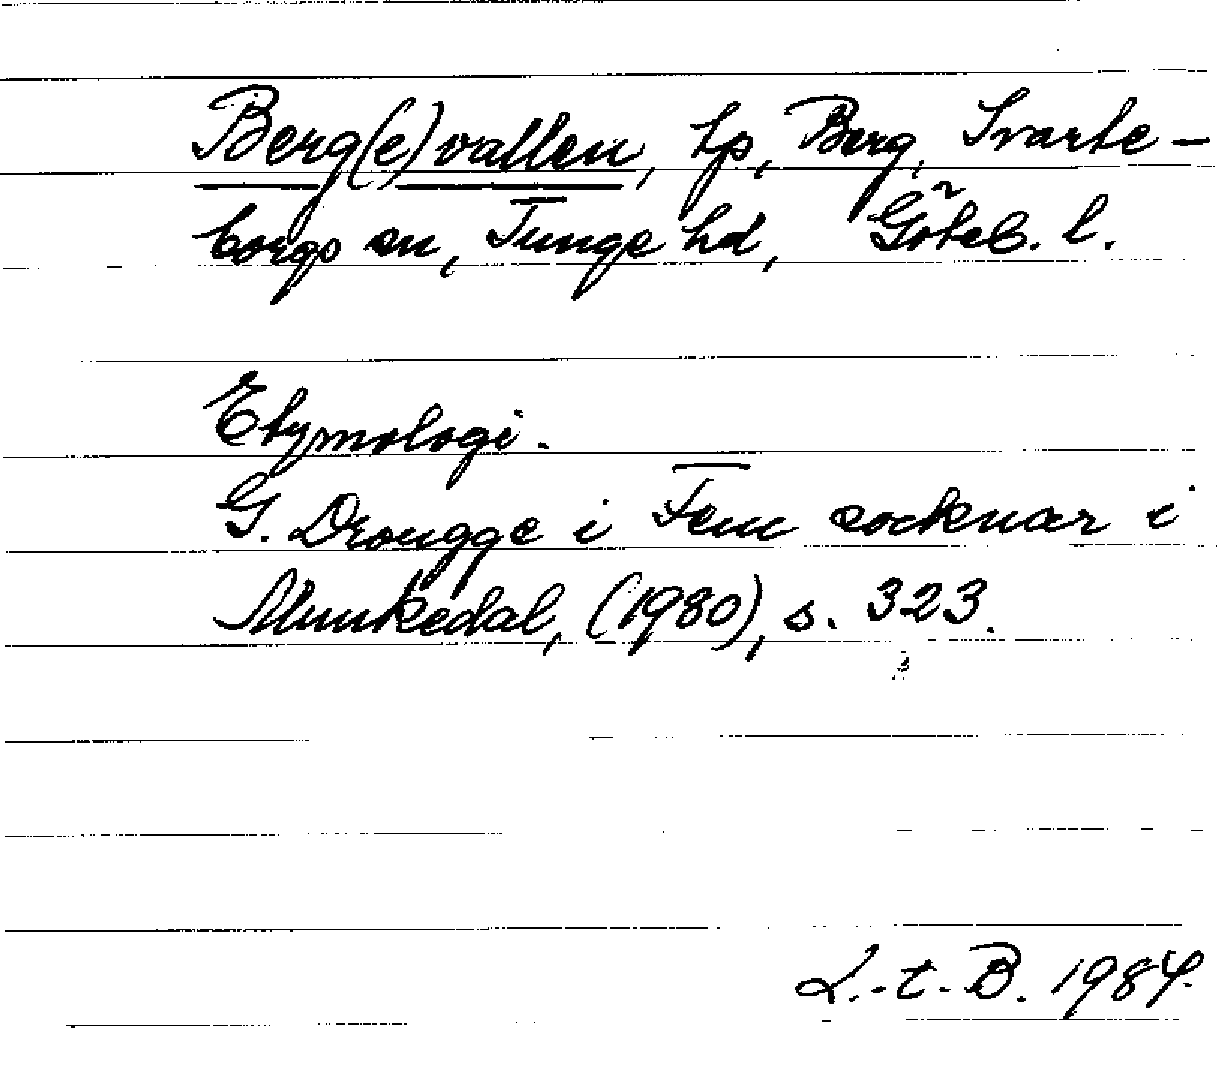 Berg(e)vallen, Lp, Berg, Svarte-
borgs sn, Tunge hd, Göteb. l.
Etymologi.
G. Drougge i Fem socknar i
Munkedal, (1980), s. 323.
L.-t. B. 1984.